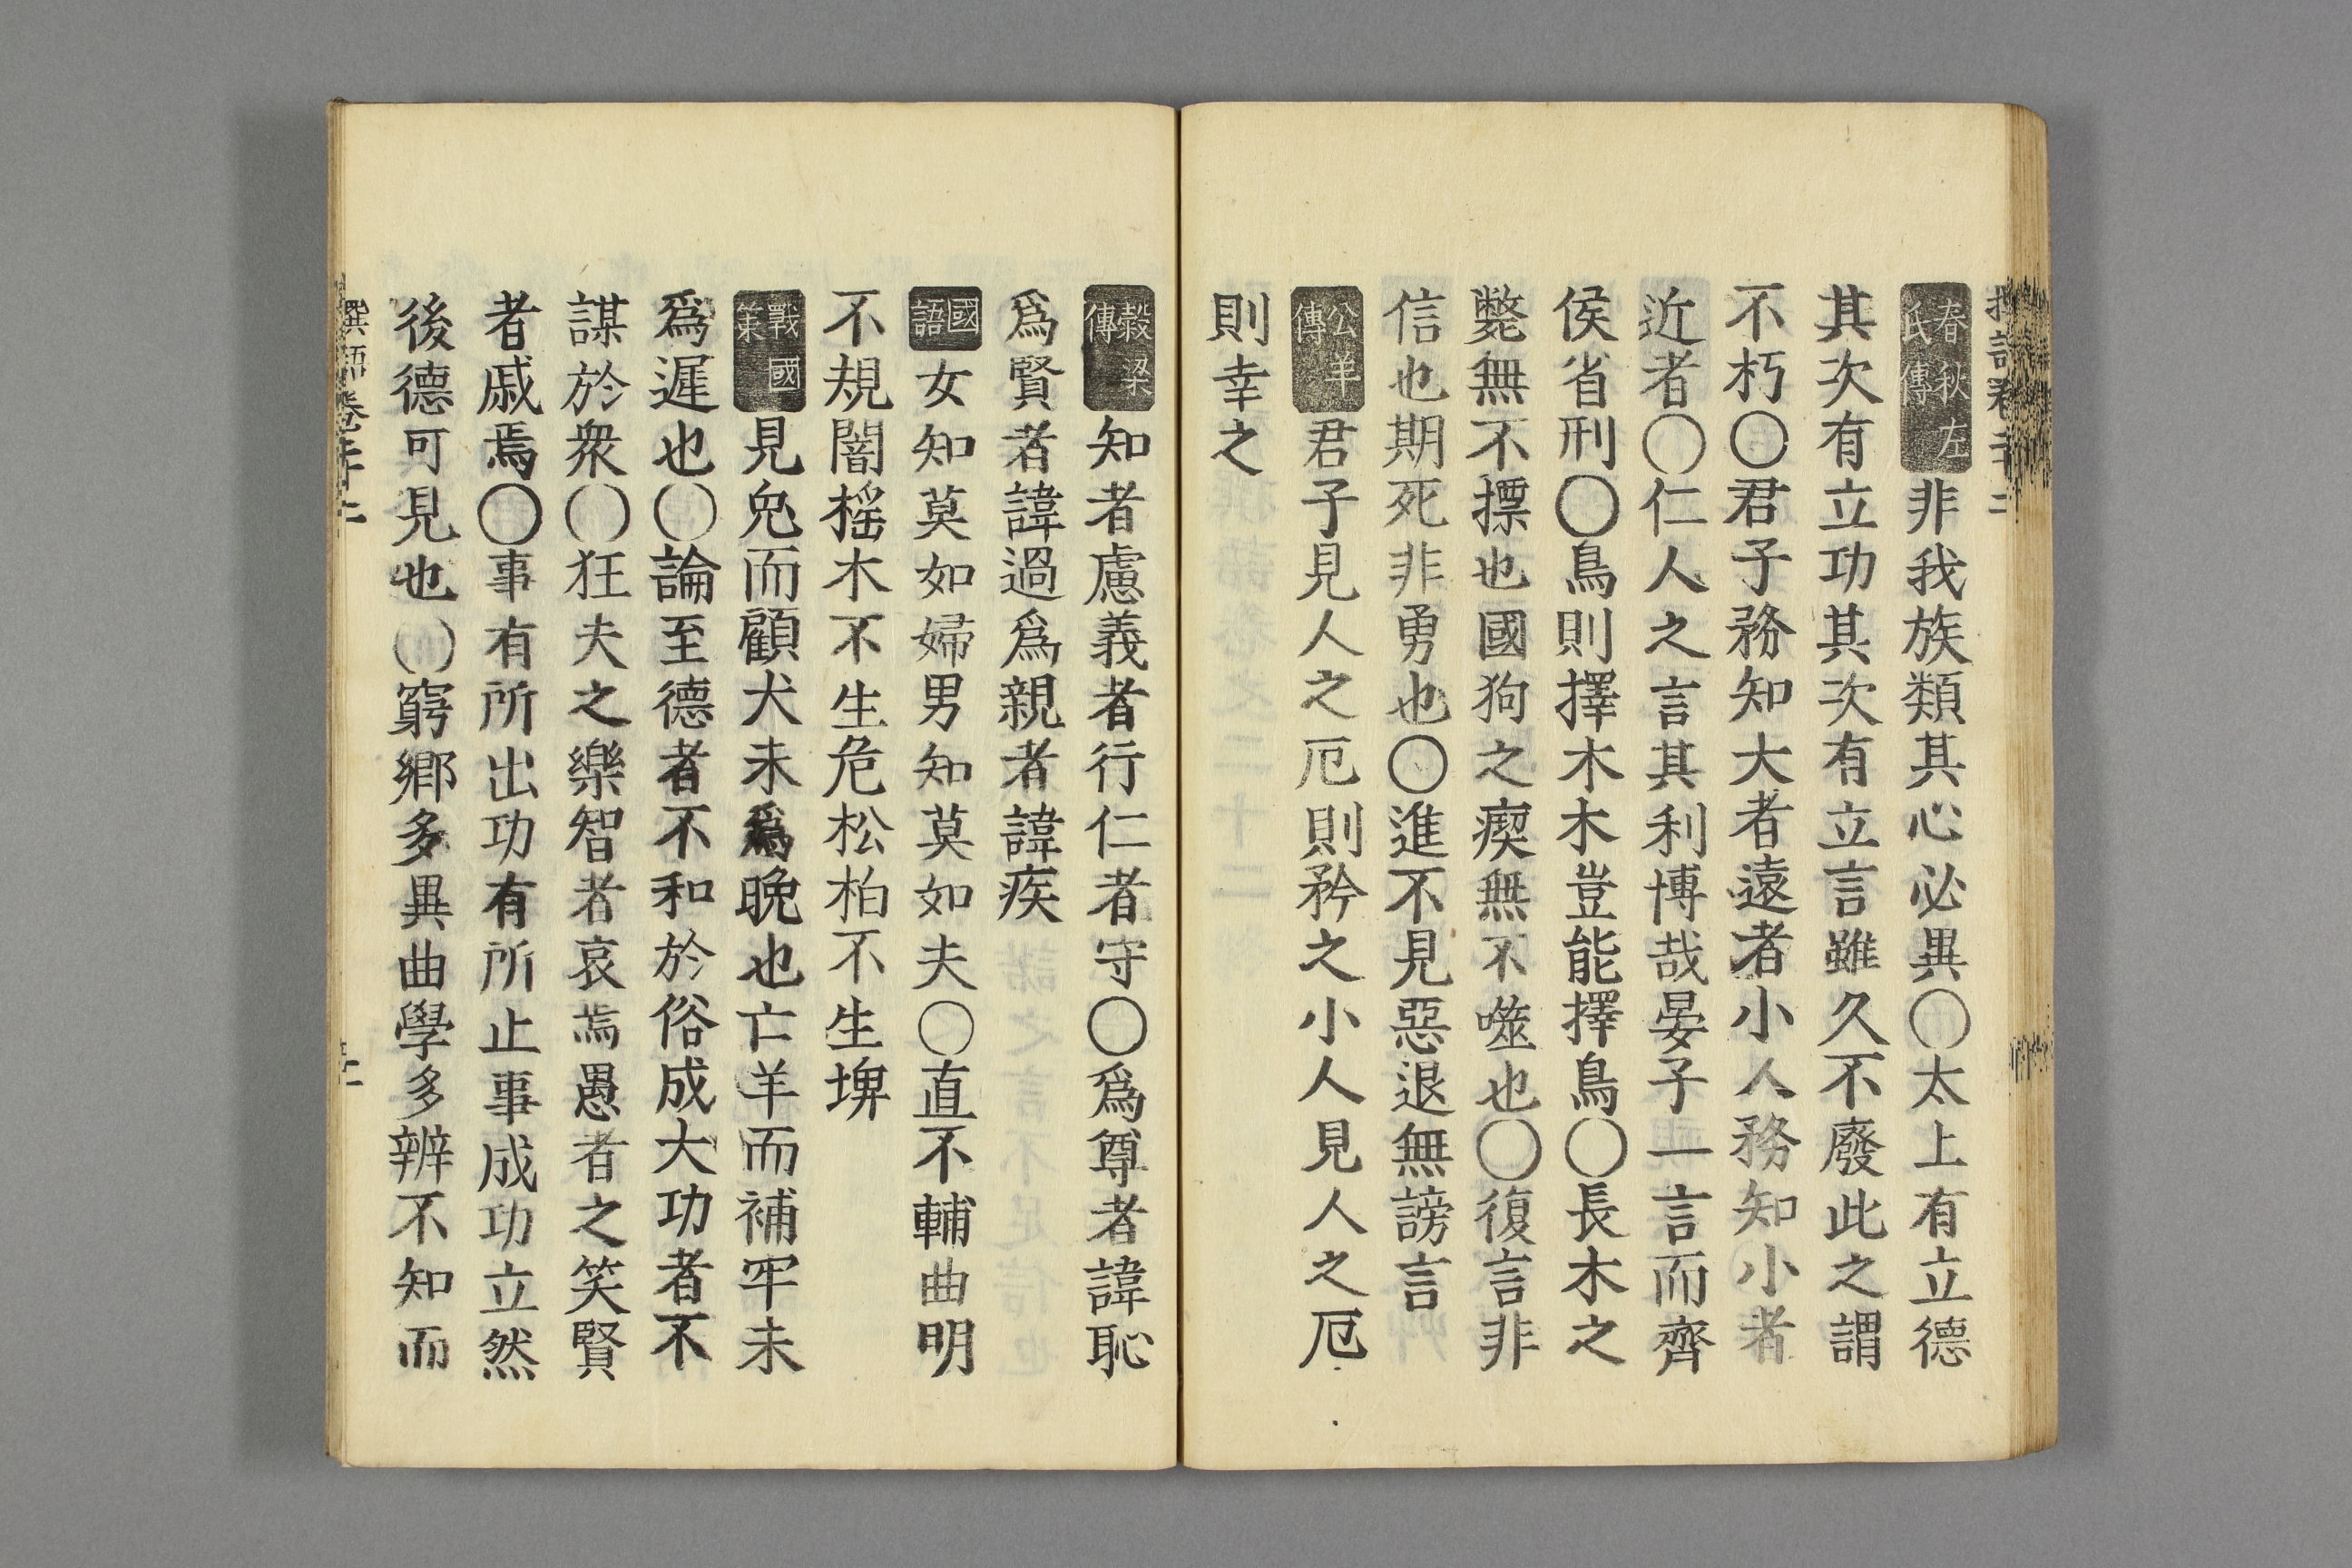 春秋左氏傳非我族類其心必異〇太上有立德
其次有立功其次有立言雖久不廢此之謂
不朽〇君子務知大者遠者小人務知小者
近者〇仁人之言其利博哉晏子一言而齊
侯省刑〇鳥則擇木木豈能擇鳥〇長木之
斃無不摽也國狗之瘈無不噬也〇復言非
信也期死非勇也〇進不見惡退無謗言
公羊傳君子見人之厄則矜之小人見人之厄
則幸之
穀梁傳知者慮義者行仁者守〇爲尊者諱恥
爲賢者諱過爲親者諱疾
國語女知莫如婦男知莫如夫〇直不輔曲明
不規闇榣木不生危松柏不生埤
戰國策見兔而顧犬未爲晚也亡羊而補牢未
爲遲也〇論至德者不和於俗成大功者不
謀於衆〇狂夫之樂智者哀焉愚者之笑賢
者戚焉〇事有所出功有所止事成功立然
後德可見也〇窮鄉多異曲學多辨不知而
撰語卷二十二